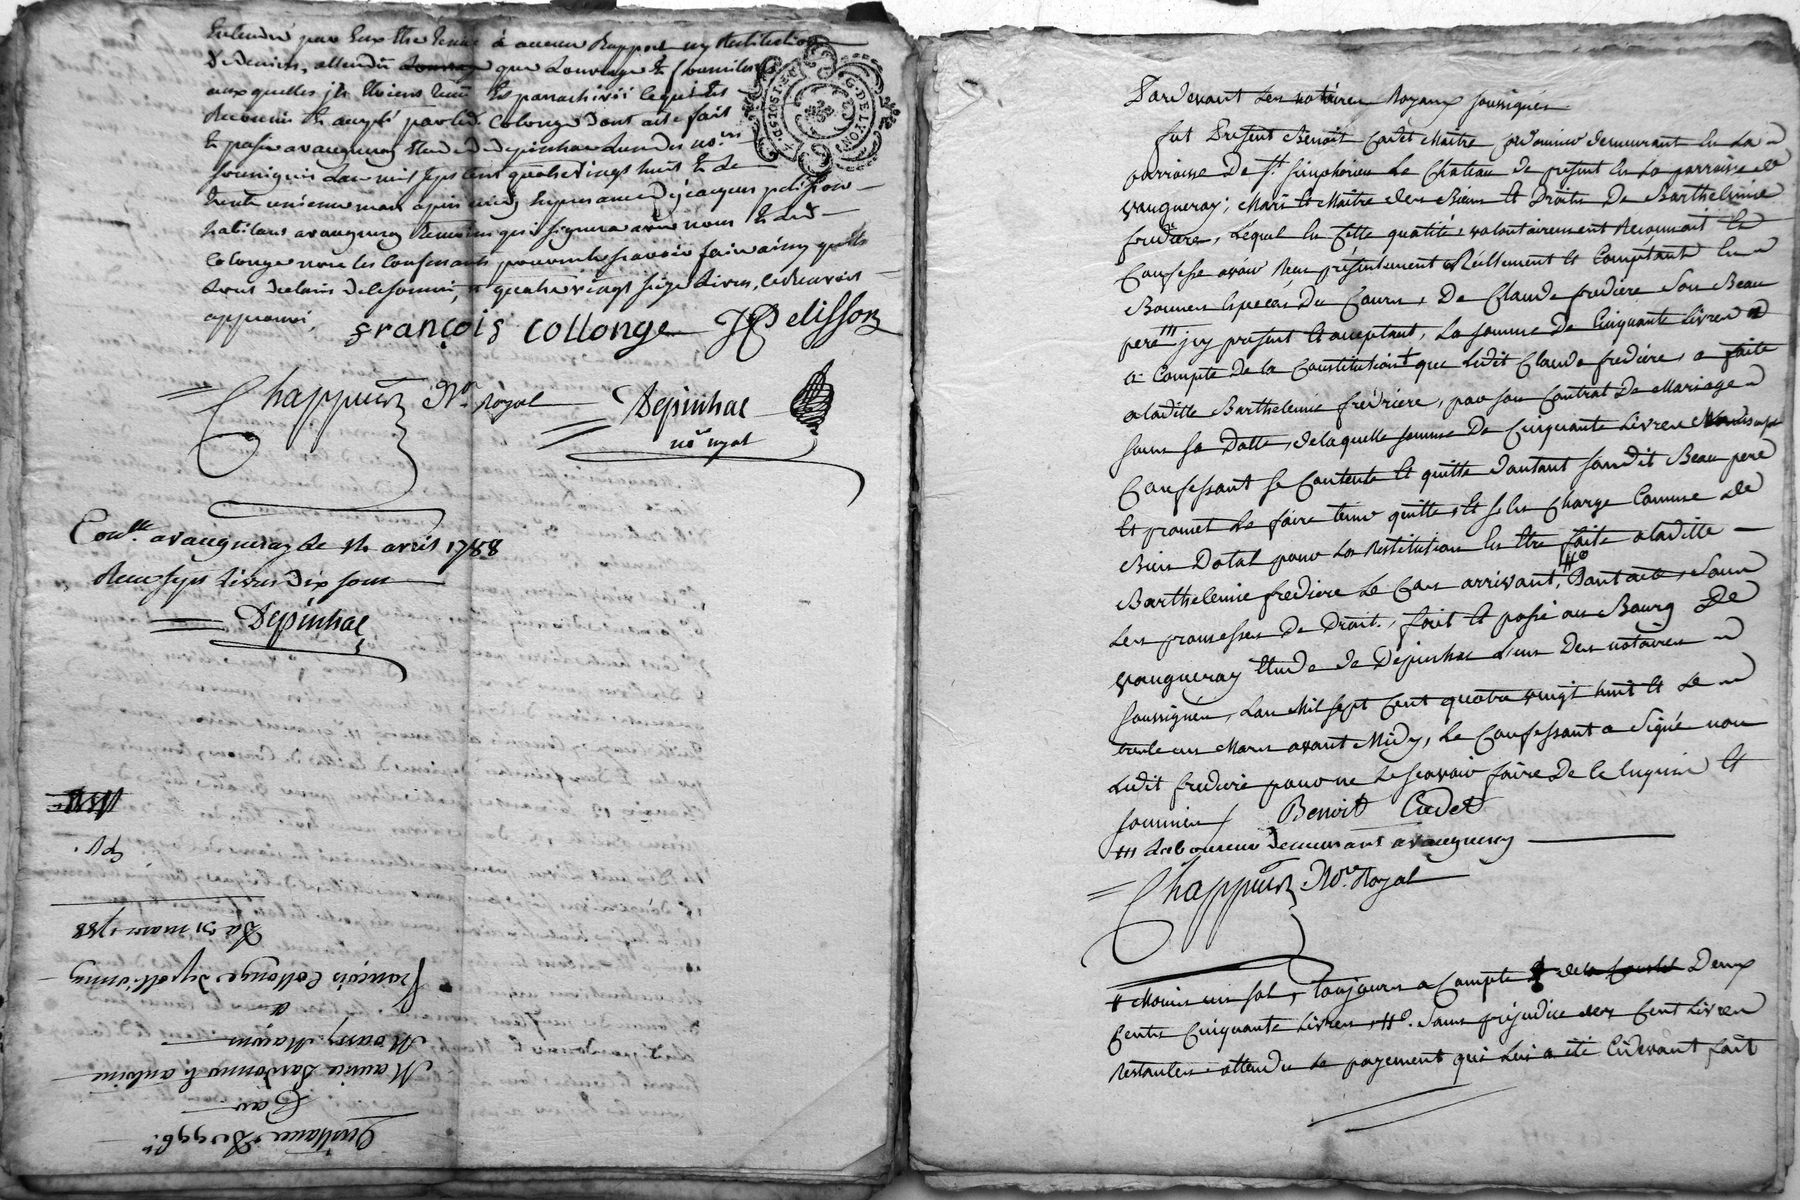 Entendu par eux etre tenue à aucun Rapport ny Restitution
Dedeniers, attendu que Louvrage et fournitures
auxquelles
Recoonnu et accepté par led. Colonge dont acte fait
et passé avaugneray Etude de depinhac Lun des no.res
soussignés Lan mil sept cent quatre vingt huit et le
trente unieme mars apres midy En presence de jacques pelisson
habitans avaugneray temoins qui signera avec nous et led.
Colonge non les Confessants pour ne le scavoir faire ainsy qu'ils
ont declaré de ce sommés, quatre vingt seize Livres, cidevant
approuvé,
françois collonge JPelisson
Chappuis No.re Royal
Depinhac
no.re royal
Con.lle avaugneray le 14 avril 1788
Recu sept Livres dix sous
Depinhac
G.DE LYON
Quittance De 996.#
Par
Marie Dardonne et antoine
Moassy Mayin
a
François Collonge
Du 31 mars 1788
Pardevant Les notaires Royaux soussignés
fut Present Benoit Cadet Maitre demeurant en La
parroisse de S.t Simphorien Le Chateau de présent en La parroisse de
vaugneray; Mari et Maitre des Biens et Droits De Barthelemie
fredière, Lequel en Cette qualité, volontairement Reconnait Et
Confesse avoir Reçu présentement Réellement et Comptant En
Bonnes Especes Du Cours, De Claude fredière Son Beau
pere /// jcy présent et acceptant, La somme De Cinquante Livres
a Compte De la Constitution + que Ledit Claude fredière, a faite
aladitte Barthelemie fredriere, par son Contrat De Mariage
sous sa Dotte, de laquelle somme De Cinquante Livres
Confessant se Contente Et quitte d'autant sondit Beau pere
Et promet Le faire tenir quitte, Et S'en Charge Comme De
Bien Dotal pour La Restitution En Etre faite aladitte
Barthelemie fredière Le Cas arrivant, # Dont acte, sous
Les promesses De Droit, fait Et passé au Bourg De
vaugneray Etude de Depinhac L'un Des notaires
soussignés, Lan Mil sept Cent quatre vingt huit Et Le
trente un Mars avant Midy, Le Confessant a Signé non
Ledit fredière pour ne Le scavoir faire De Ce Enquis Et
sommés / Benoit Cadet
/// Laboureur demeurant avaugneray
Chappuis No.re Royal
+ Moins un sol, toujours a Compte de la Deux
Cents Cinquante Livres, # Sans préjudice des Cent Livres
Restantes attendu Le payement qui Lui a été Cidevant fait